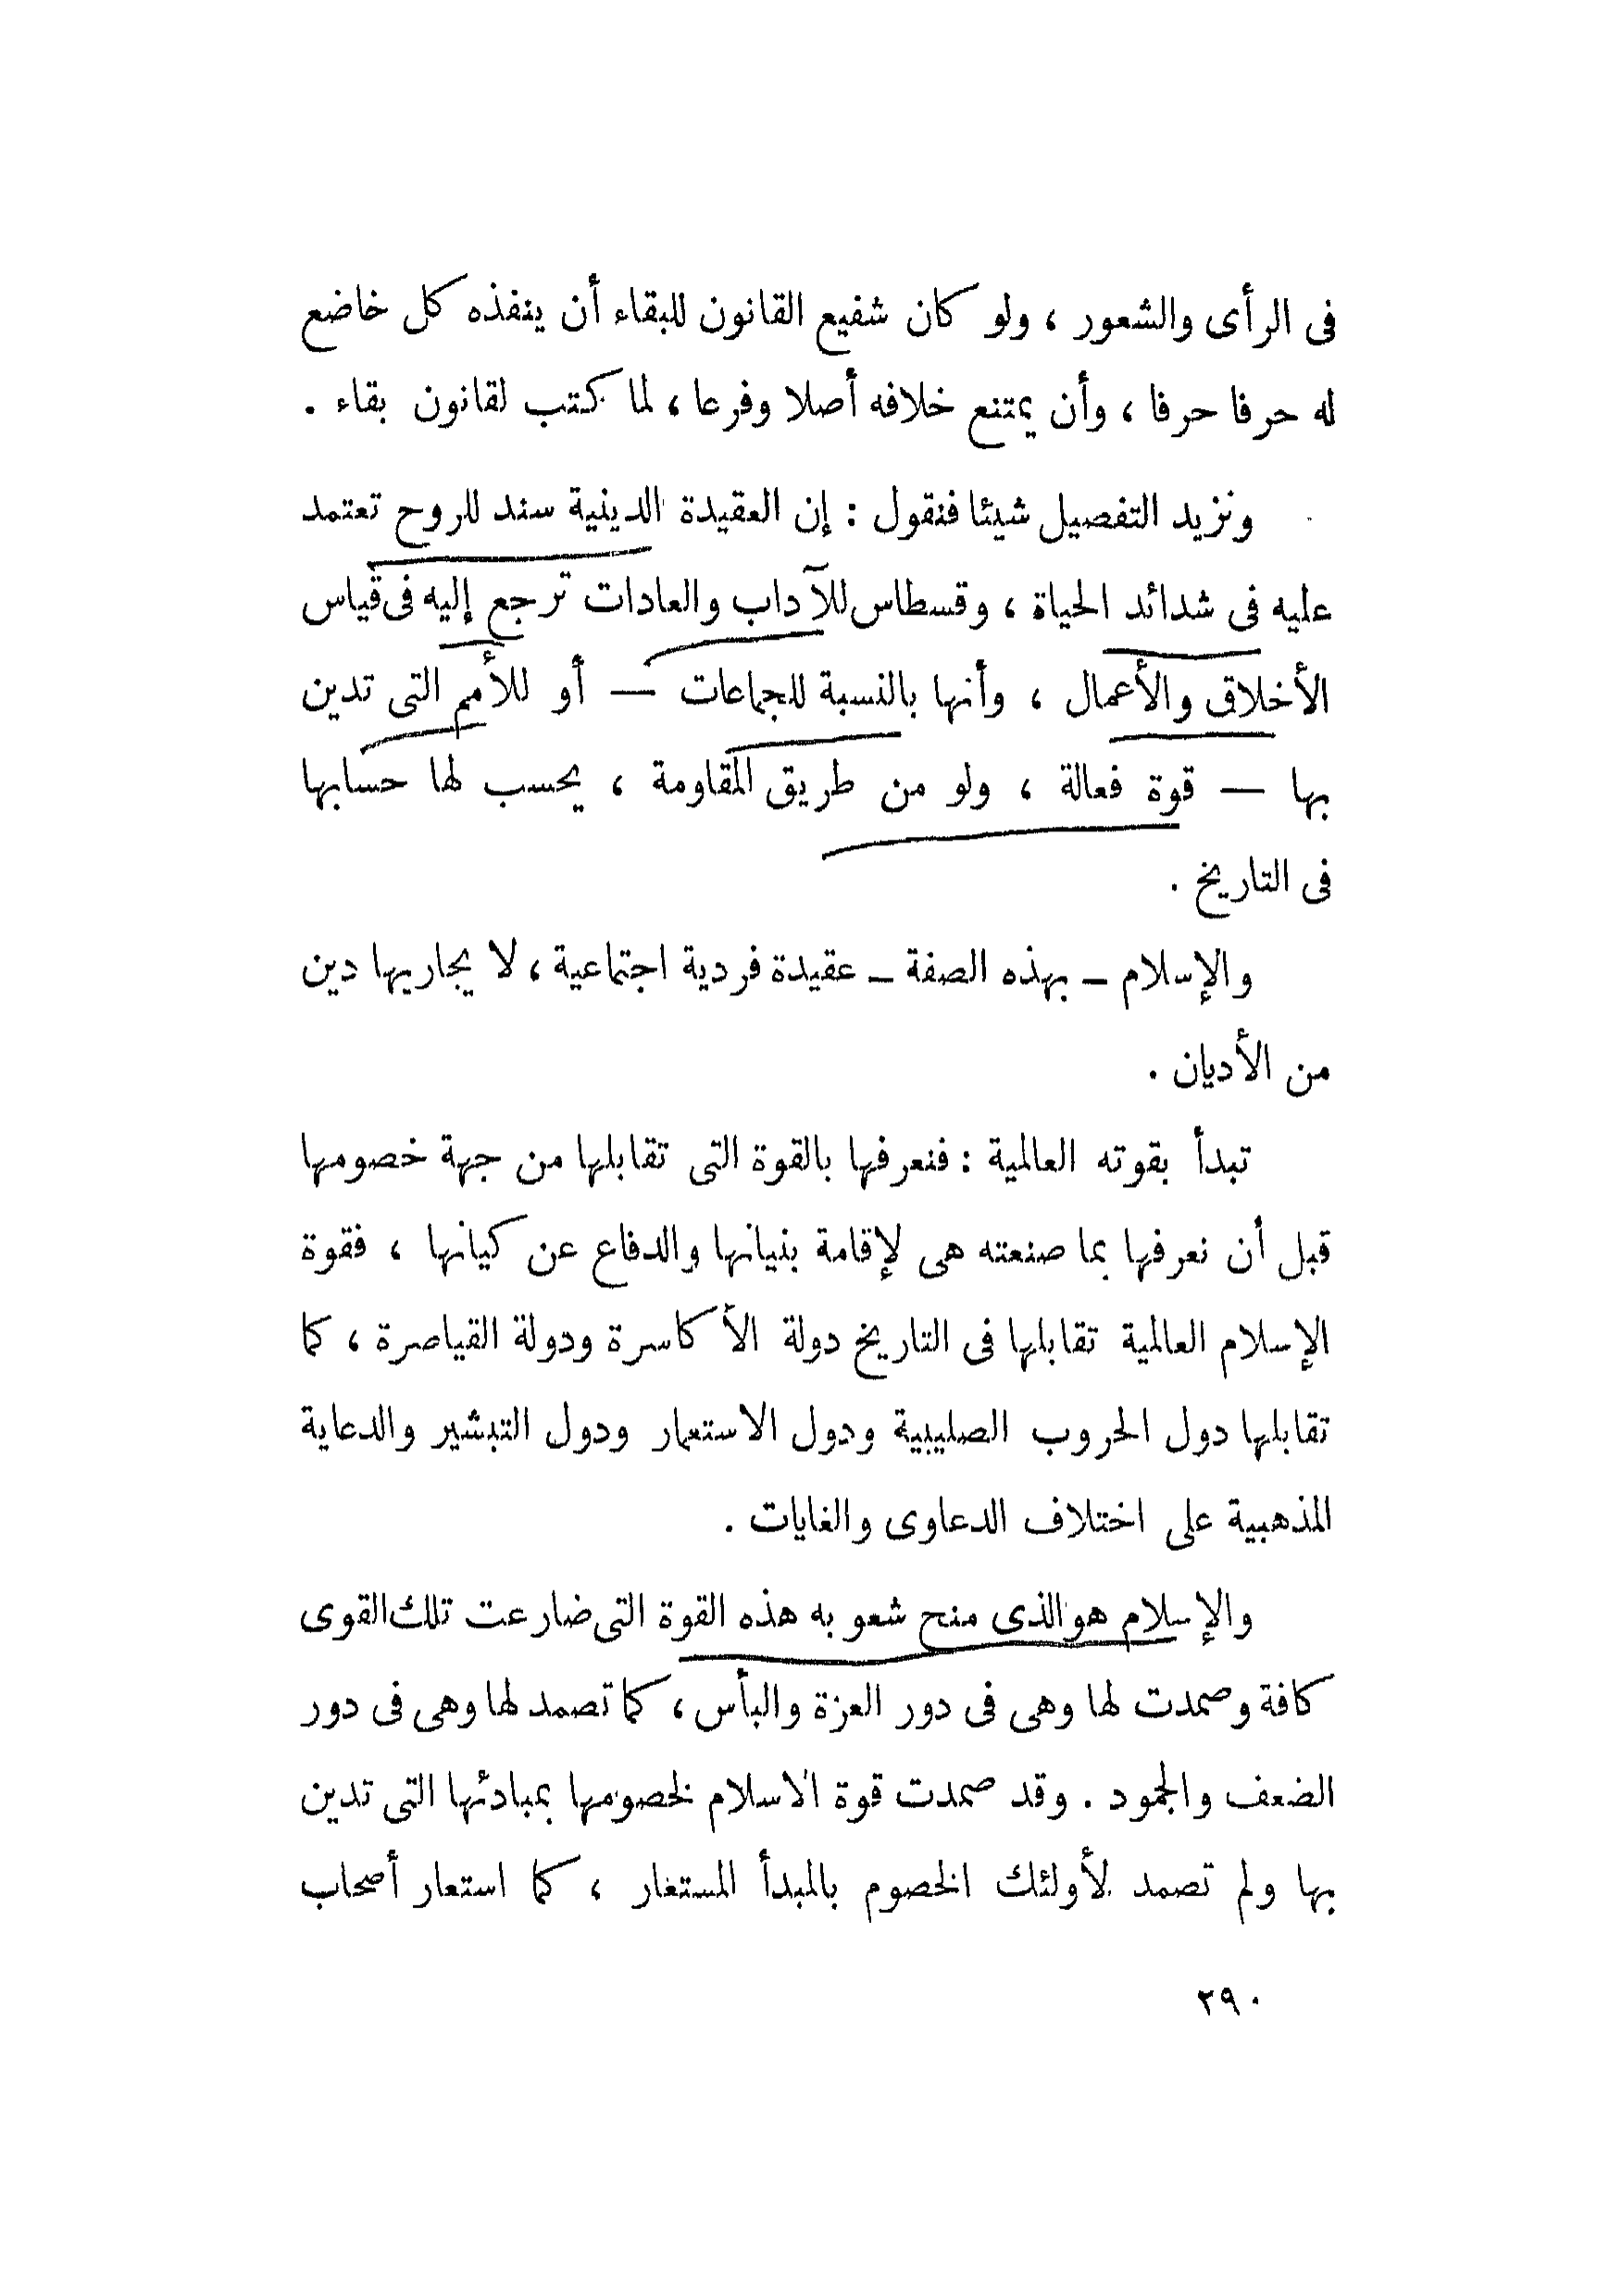 فى الرأى والشعور ، ولو كان شفيع القانون للبقاء أن ينفذه كل خاضع
له حرفا حرفا ، وأن يمتنع خلافه أصلا وفرعا ، لما كتب لقانون بقاء .
ونزيد التفصيل شيئا فنقول : إن العقيدة الدينية سند للروح تعتمد
عليه فى شدائد الحياة ، وقسطاس للآداب والعادات ترجع إليه فى قياس
الأخلاق والأعمال ، وأنها بالنسبة للجماعات — أو للأمم التى تدين
بها — قوة فعالة ، ولو من طريق المقاومة ، يحسب لها حسابها
فى التاريخ .
والإسلام – بهذه الصفة – عقيدة فردية اجتماعية ، لا يجاريها دين
من الأديان .
تبدأ بقوته العالمية : فنعرفها بالقوة التى تقابلها من جهة خصومها
قبل أن نعرفها بما صنعته هى لإقامة بنيانها والدفاع عن كيانها ، فقوة
الإسلام العالمية تقابلها فى التاريخ دولة الأكاسرة ودولة القياصرة ، كما
تقابلها دول الحروب الصليبية ودول الاستعمار ودول التبشير والدعاية
المذهبية على اختلاف الدعاوى والغايات .
والإسلام هو الذى منح شعوبه هذه القوة التى ضارعت تلك القوى
كافة وصمدت لها وهى فى دور العزة والبأس ، كما تصمد لها وهى فى دور
الضعف والجمود . وقد صمدت قوة الاسلام لخصومها بمبادئها التى تدين
بها ولم تصمد لأولئك الخصوم بالمبدأ المستغار ، كما استعار أصحاب
٢٩٠